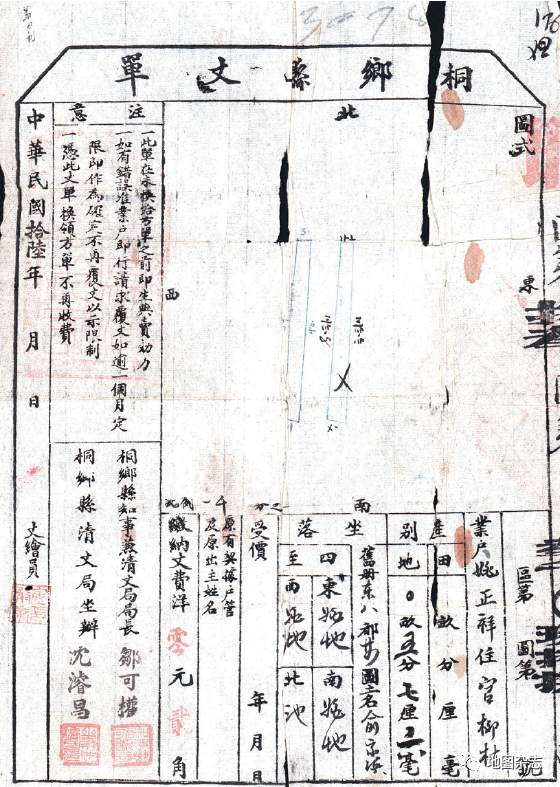 3098
桐鄉縣丈單
圖式
北
東
西
南
區第
圖第
號
業戶姚正祥住官柳村
產
別
田
地
畝分厘毫
0畝五分七厘二毫
坐
落
四
至
東姚地
南姚地
西姚地
北池
受價
年月日
原有契據戶管
及原出主姓名
繳納丈費洋零元貳角
注意
一此單在未換給方單之前即生典賣効力
一如有錯誤准業戶即行請求覆丈如逾一個月定
限即作為確定不再覆丈以示限制
一憑此丈單換領方單不再收費
桐鄉縣知事兼清丈局局長鄒可權
桐鄉縣清丈局坐辦沈濬昌
中華民國拾陸年 月 日
丈繪員
地图杂志